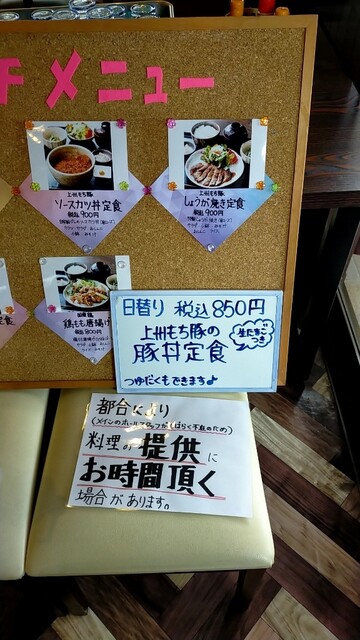 チメニュー
上州もち豚
ソースカツ丼定食
税込 900円
上州もち豚
しょうが焼き定食
税込 900円
鶏もも唐揚げ
税込 800円
定食
日替り 税込850円
上州もち豚の
豚丼定食
つき
つゆだくもできます♪
都合により
(メインのホールスタッフがしばらく不在のため)
料理の提供に
お時間頂く
場合があります。